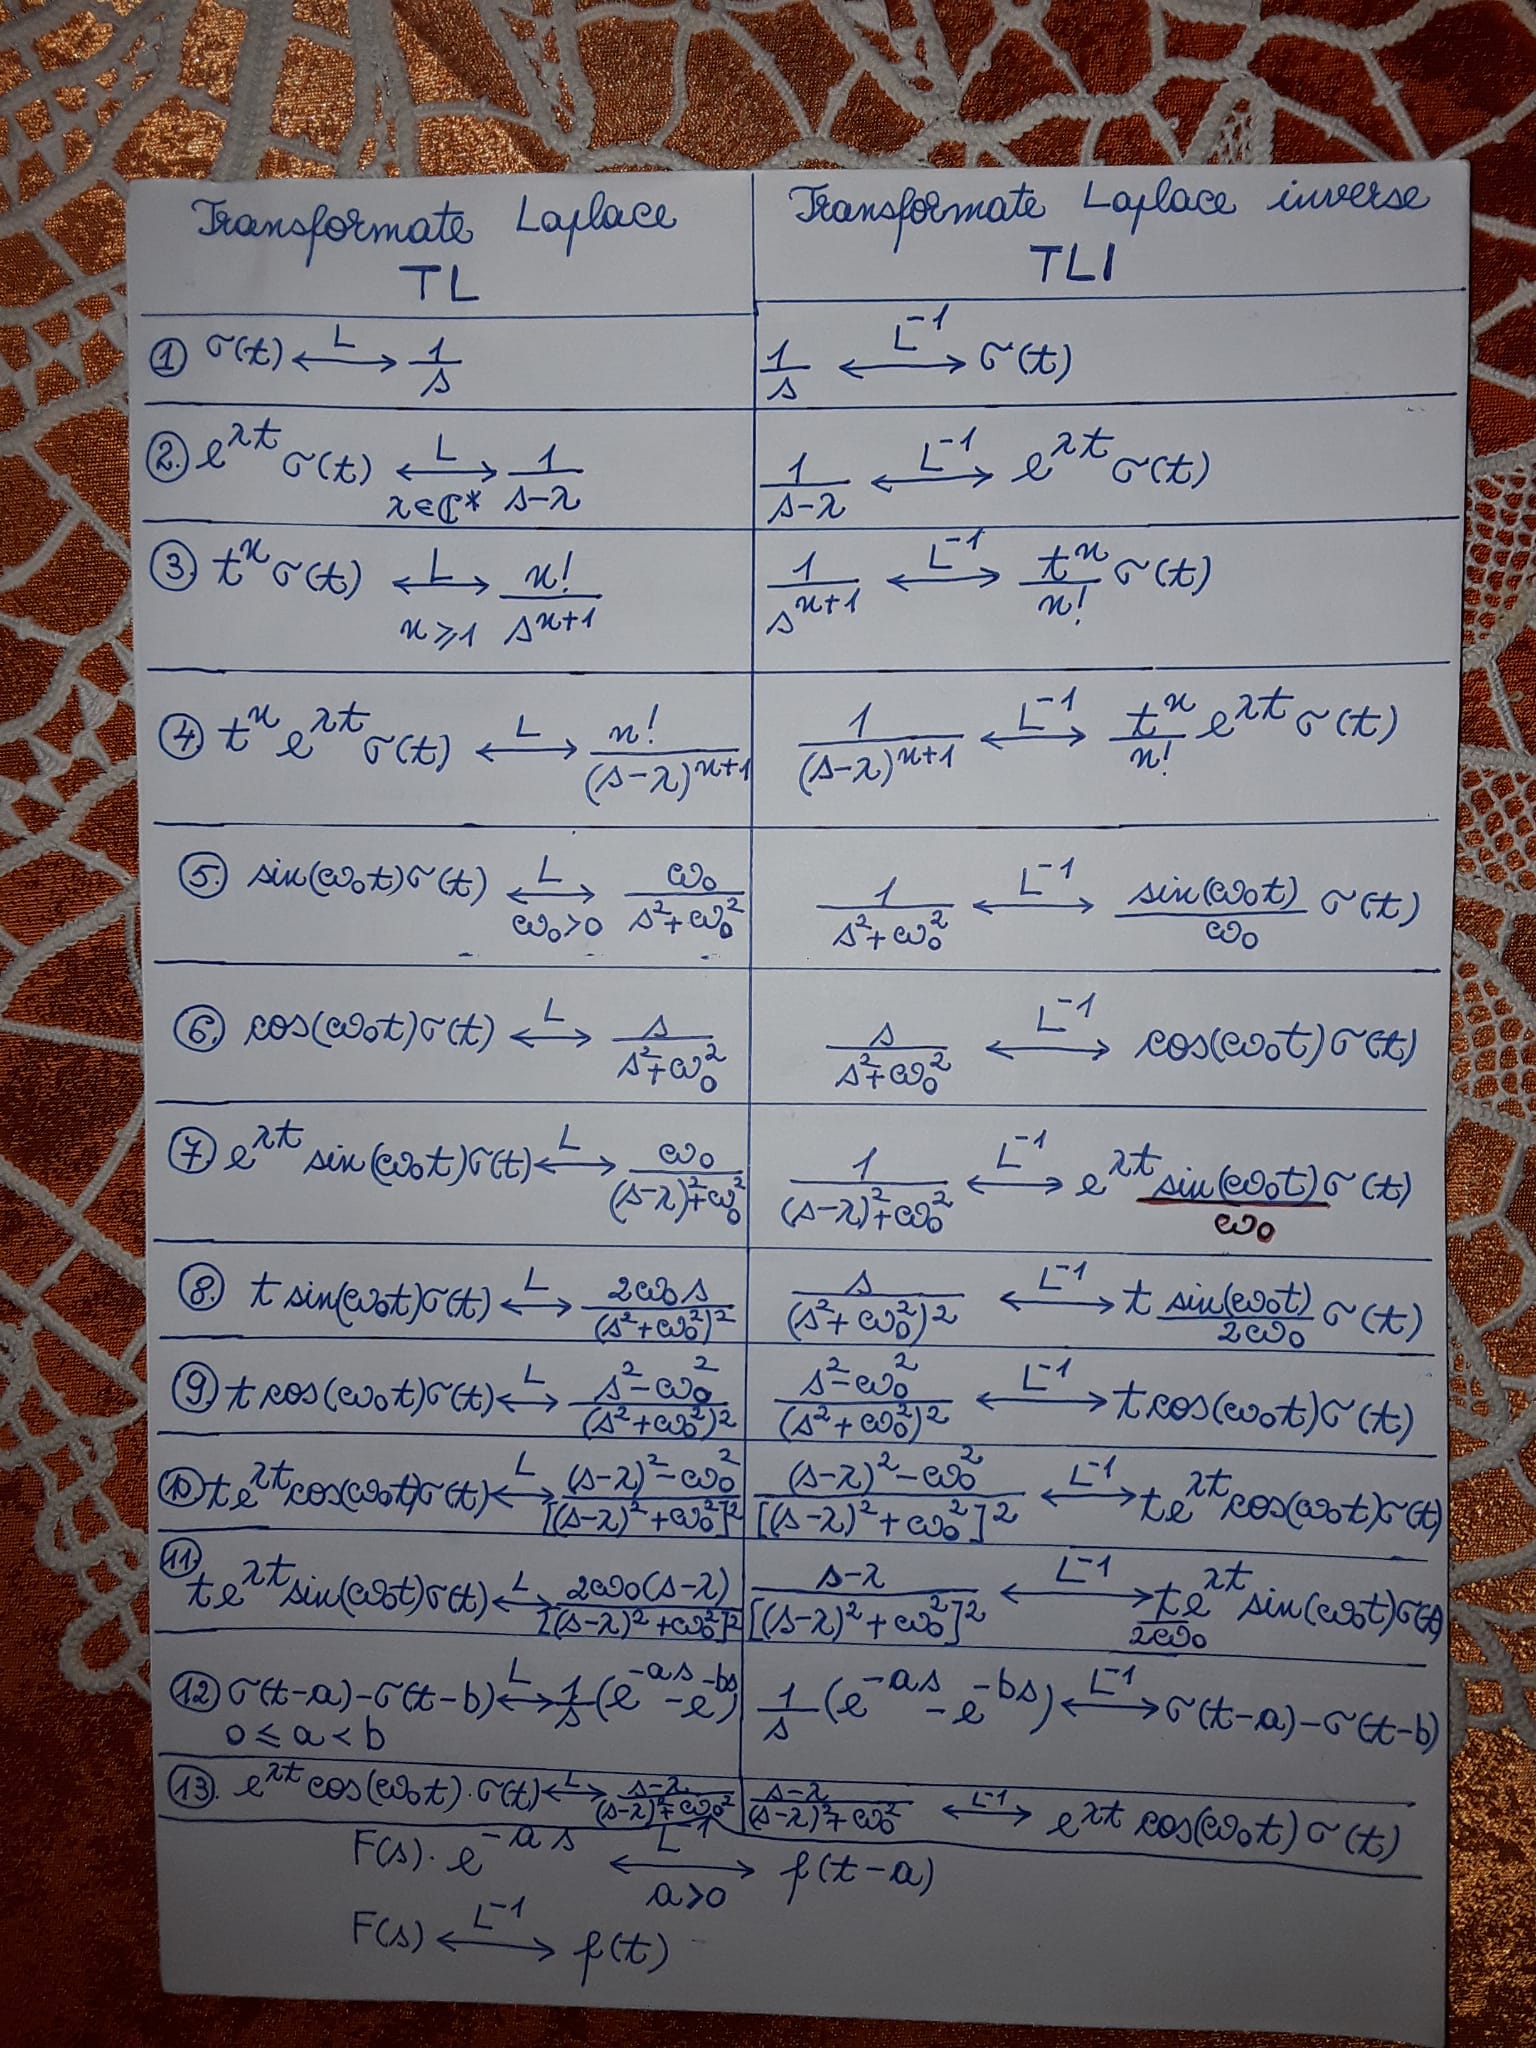 Transformate Laplace
TL
Transformate Laplace inverse
TLI
① σ(t) ⟷^L 1/s
1/s ⟷^{L^-1} σ(t)
②. e^{λt} σ(t) ⟷^L_{λ∈ℂ*} 1/(s-λ)
1/(s-λ) ⟷^{L^-1} e^{λt} σ(t)
③. t^n σ(t) ⟷^L_{n⩾1} n!/s^{n+1}
1/s^{n+1} ⟷^{L^-1} t^n/n! σ(t)
④. t^n e^{λt} σ(t) ⟷^L n!/(s-λ)^{n+1}
1/(s-λ)^{n+1} ⟷^{L^-1} t^n/n! e^{λt} σ(t)
⑤. sin(ω₀t)σ(t) ⟷^L_{ω₀>0} ω₀/(s²+ω₀²)
1/(s²+ω₀²) ⟷^{L^-1} sin(ω₀t)/ω₀ σ(t)
⑥. cos(ω₀t)σ(t) ⟷^L s/(s²+ω₀²)
s/(s²+ω₀²) ⟷^{L^-1} cos(ω₀t)σ(t)
⑦. e^{λt} sin(ω₀t)σ(t) ⟷^L ω₀/((s-λ)²+ω₀²)
1/((s-λ)²+ω₀²) ⟷^{L^-1} e^{λt} sin(ω₀t)/ω₀ σ(t)
⑧. t sin(ω₀t)σ(t) ⟷^L 2ω₀s/(s²+ω₀²)²
s/(s²+ω₀²)² ⟷^{L^-1} t sin(ω₀t)/2ω₀ σ(t)
⑨. t cos(ω₀t)σ(t) ⟷^L (s²-ω₀²)/(s²+ω₀²)²
(s²-ω₀²)/(s²+ω₀²)² ⟷^{L^-1} t cos(ω₀t)σ(t)
⑩. te^{λt}cos(ω₀t)σ(t) ⟷^L ((s-λ)²-ω₀²)/[(s-λ)²+ω₀²]²
((s-λ)²-ω₀²)/[(s-λ)²+ω₀²]² ⟷^{L^-1} te^{λt}cos(ω₀t)σ(t)
⑪. te^{λt}sin(ω₀t)σ(t) ⟷^L 2ω₀(s-λ)/[(s-λ)²+ω₀²]²
(s-λ)/[(s-λ)²+ω₀²]² ⟷^{L^-1} te^{λt}/2ω₀ sin(ω₀t)σ(t)
⑫ σ(t-a)-σ(t-b) ⟷^L 1/s (e^{-as}-e^{-bs})
0 ⩽ a < b
1/s (e^{-as}-e^{-bs}) ⟷^{L^-1} σ(t-a)-σ(t-b)
⑬. e^{λt} cos(ω₀t)·σ(t) ⟷^L (s-λ)/((s-λ)²+ω₀²)
(s-λ)/((s-λ)²+ω₀²) ⟷^{L^-1} e^{λt} cos(ω₀t)σ(t)
F(s)·e^{-as} ⟷^{L^-1}_{a>0} f(t-a)
F(s) ⟷^{L^-1} f(t)